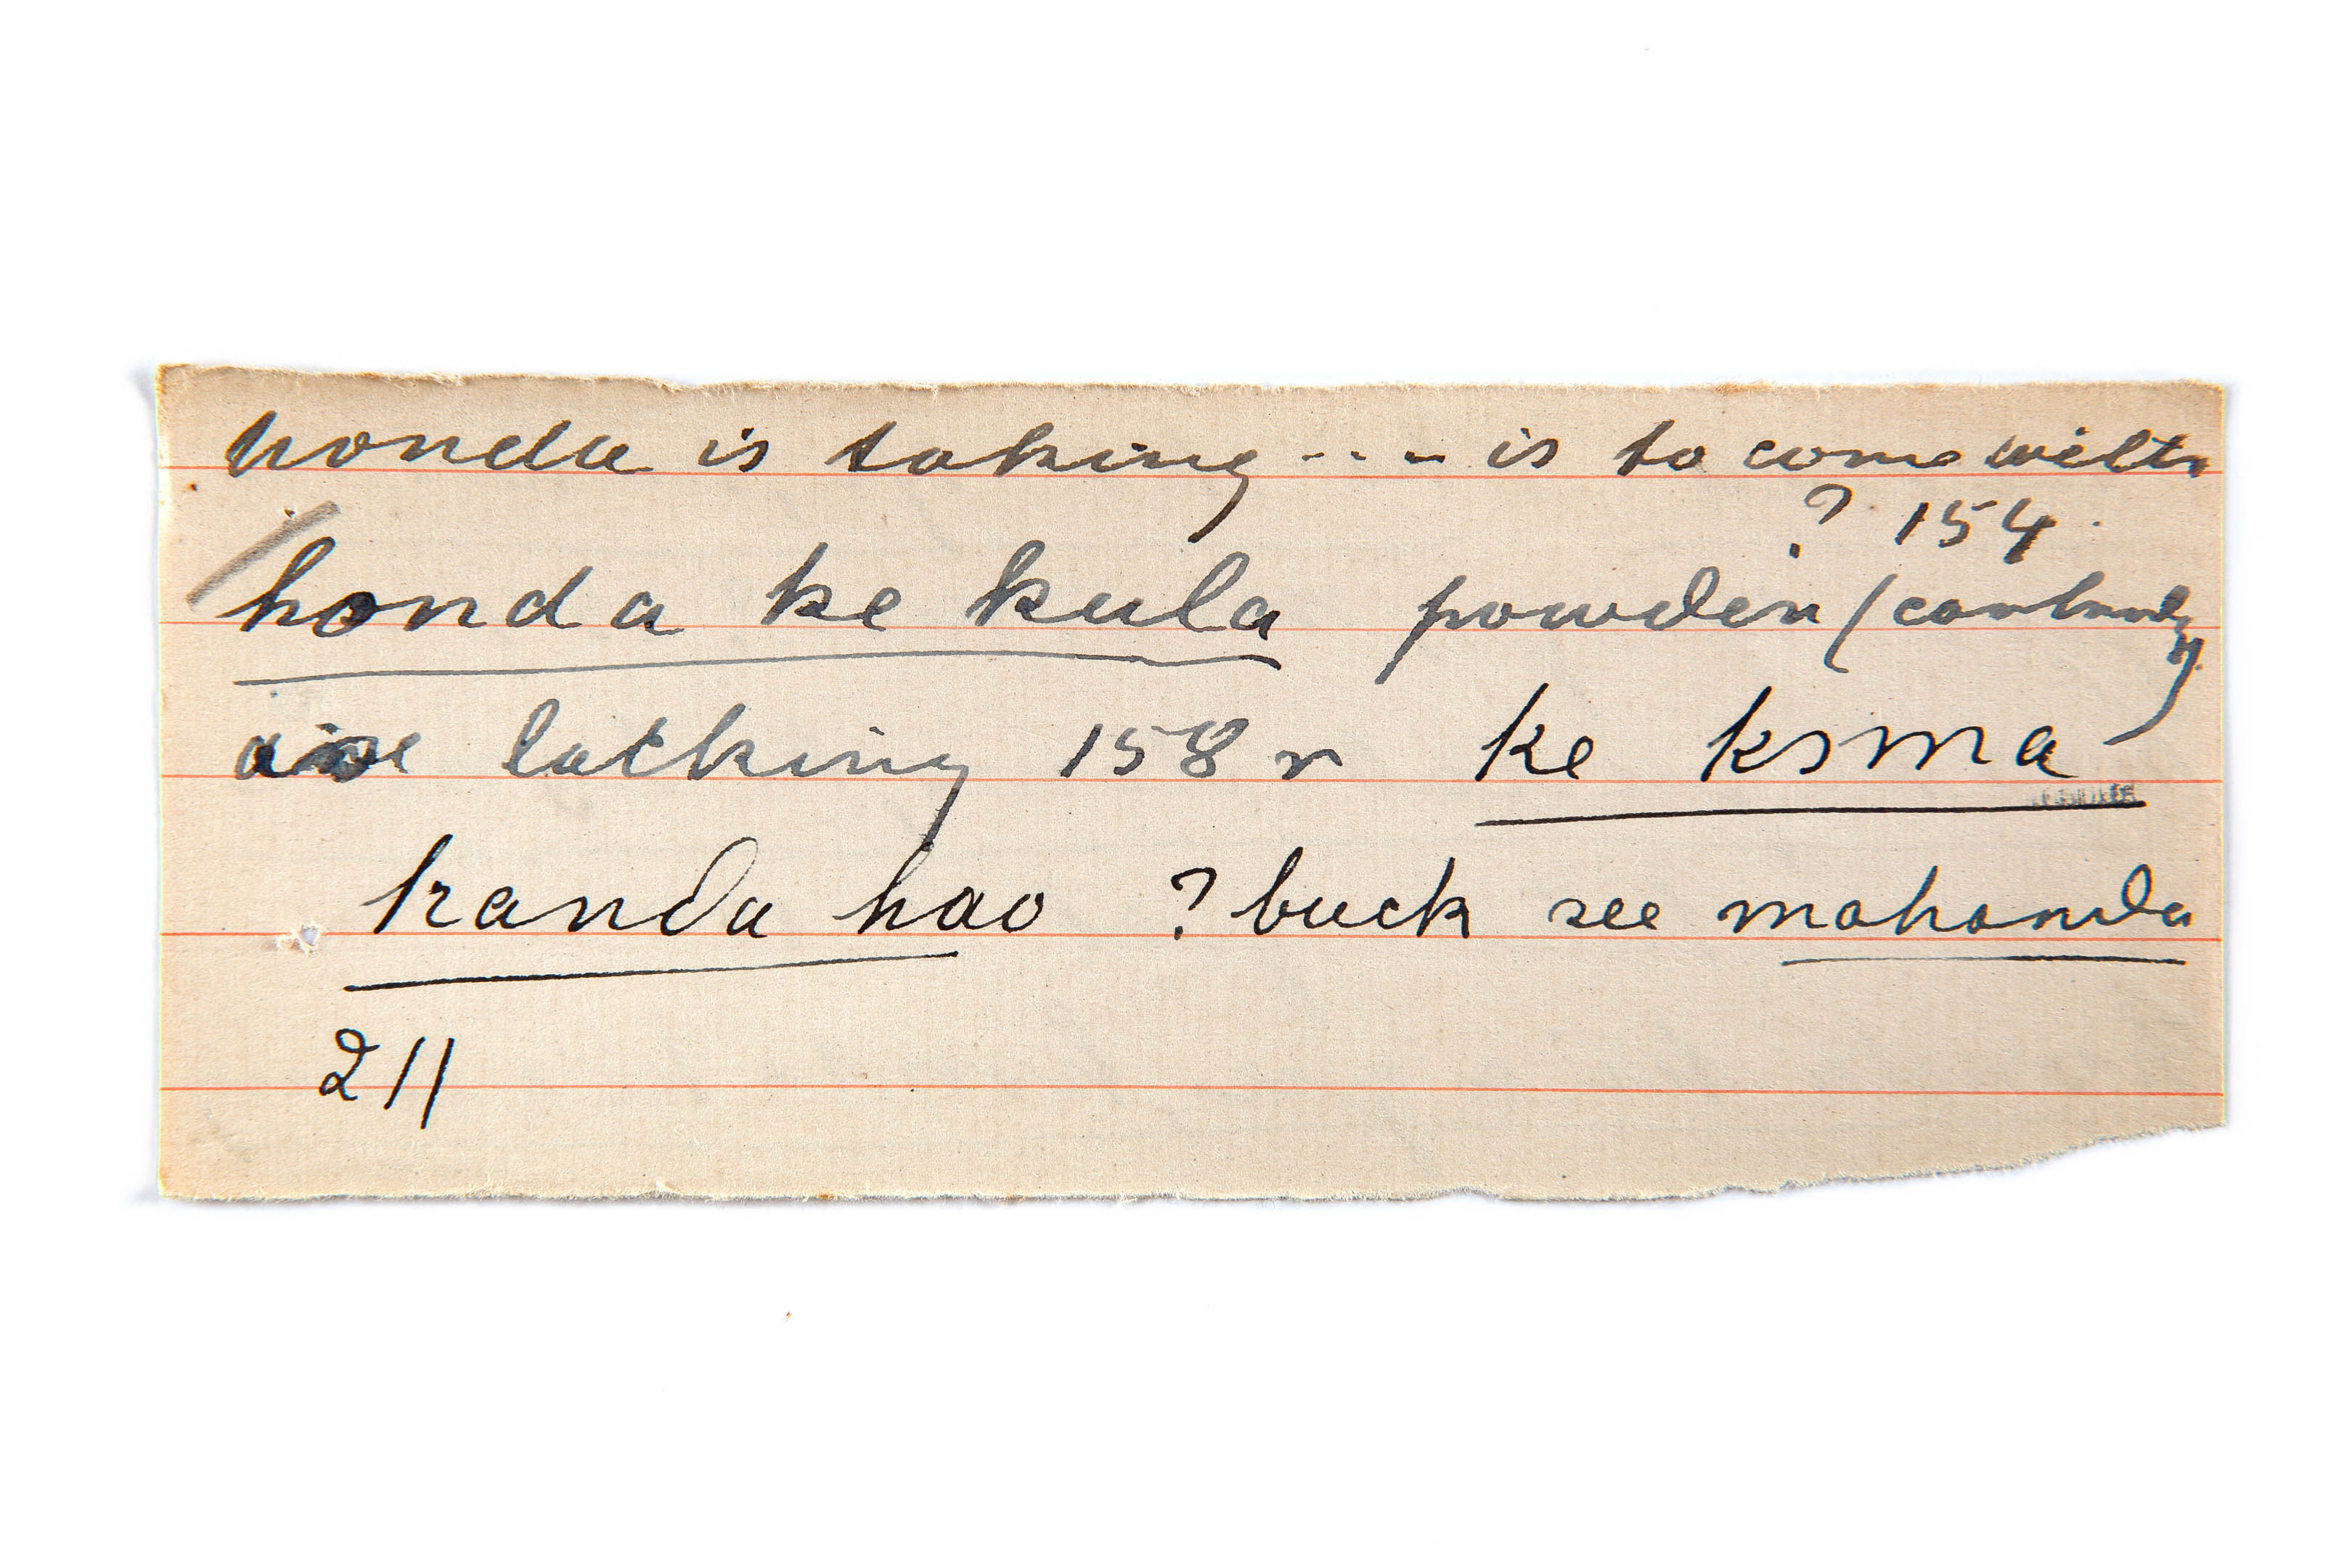 honda is taking --- is to come with
? 154
honda ke kula powder (
are lacking 158 r ke ksma )
kanda hao ? buck see mahonda
211